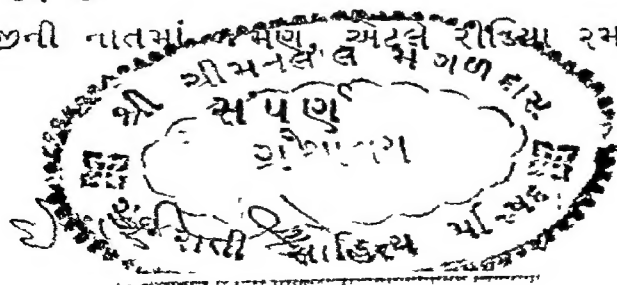 જીની નાતમાં જમણ એટલે રીડિયા રમ
શ્રી ચીમનલાલ મંગળદાસ
સંપૂર્ણ
ગ્રંથાલય
ગુજરાતી સાહિત્ય પરિષદ